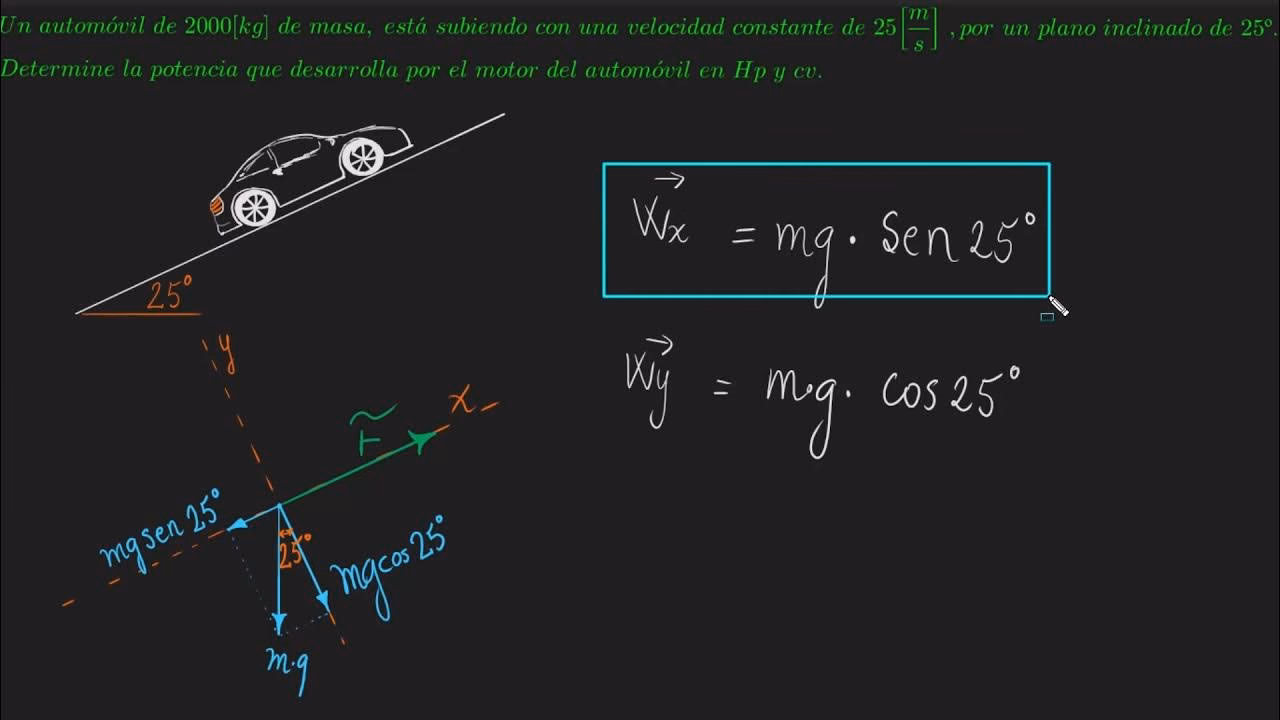 Un automóvil de 2000[kg] de masa, está subiendo con una velocidad constante de 25[m/s] , por un plano inclinado de 25°.
Determine la potencia que desarrolla por el motor del automóvil en Hp y cv.
Wx = mg · Sen 25°
25°
y
Wy = m·g · cos 25°
x
F
mg sen 25°
25°
mg cos 25°
m·g